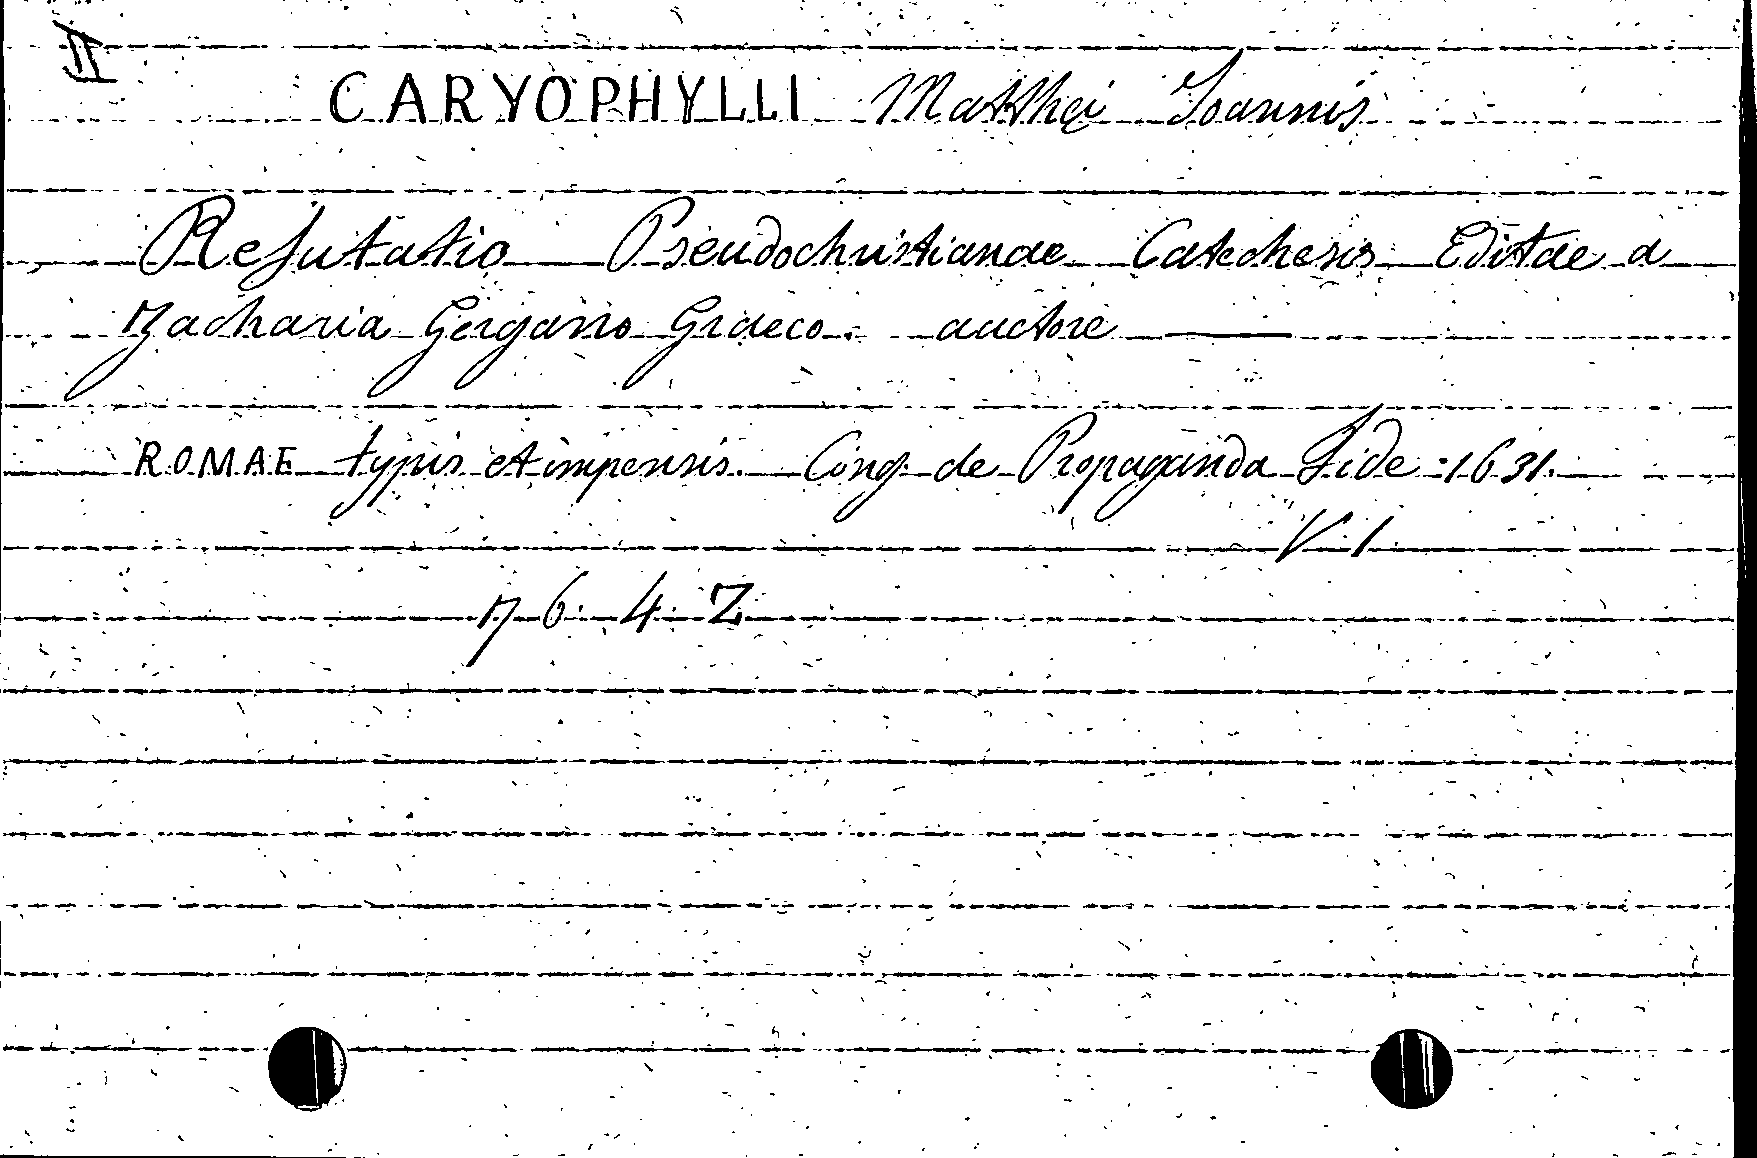 II
CARYOPHYLLI Matthęi Ioannis
Refutatio Pseudochristianae Catechesis Editae a
Zacharia Gergano Graeco. auctore ———
ROMAE typis et impensis. Cong. de Propaganda Fide 1631.
V. 1
76. 4. Z